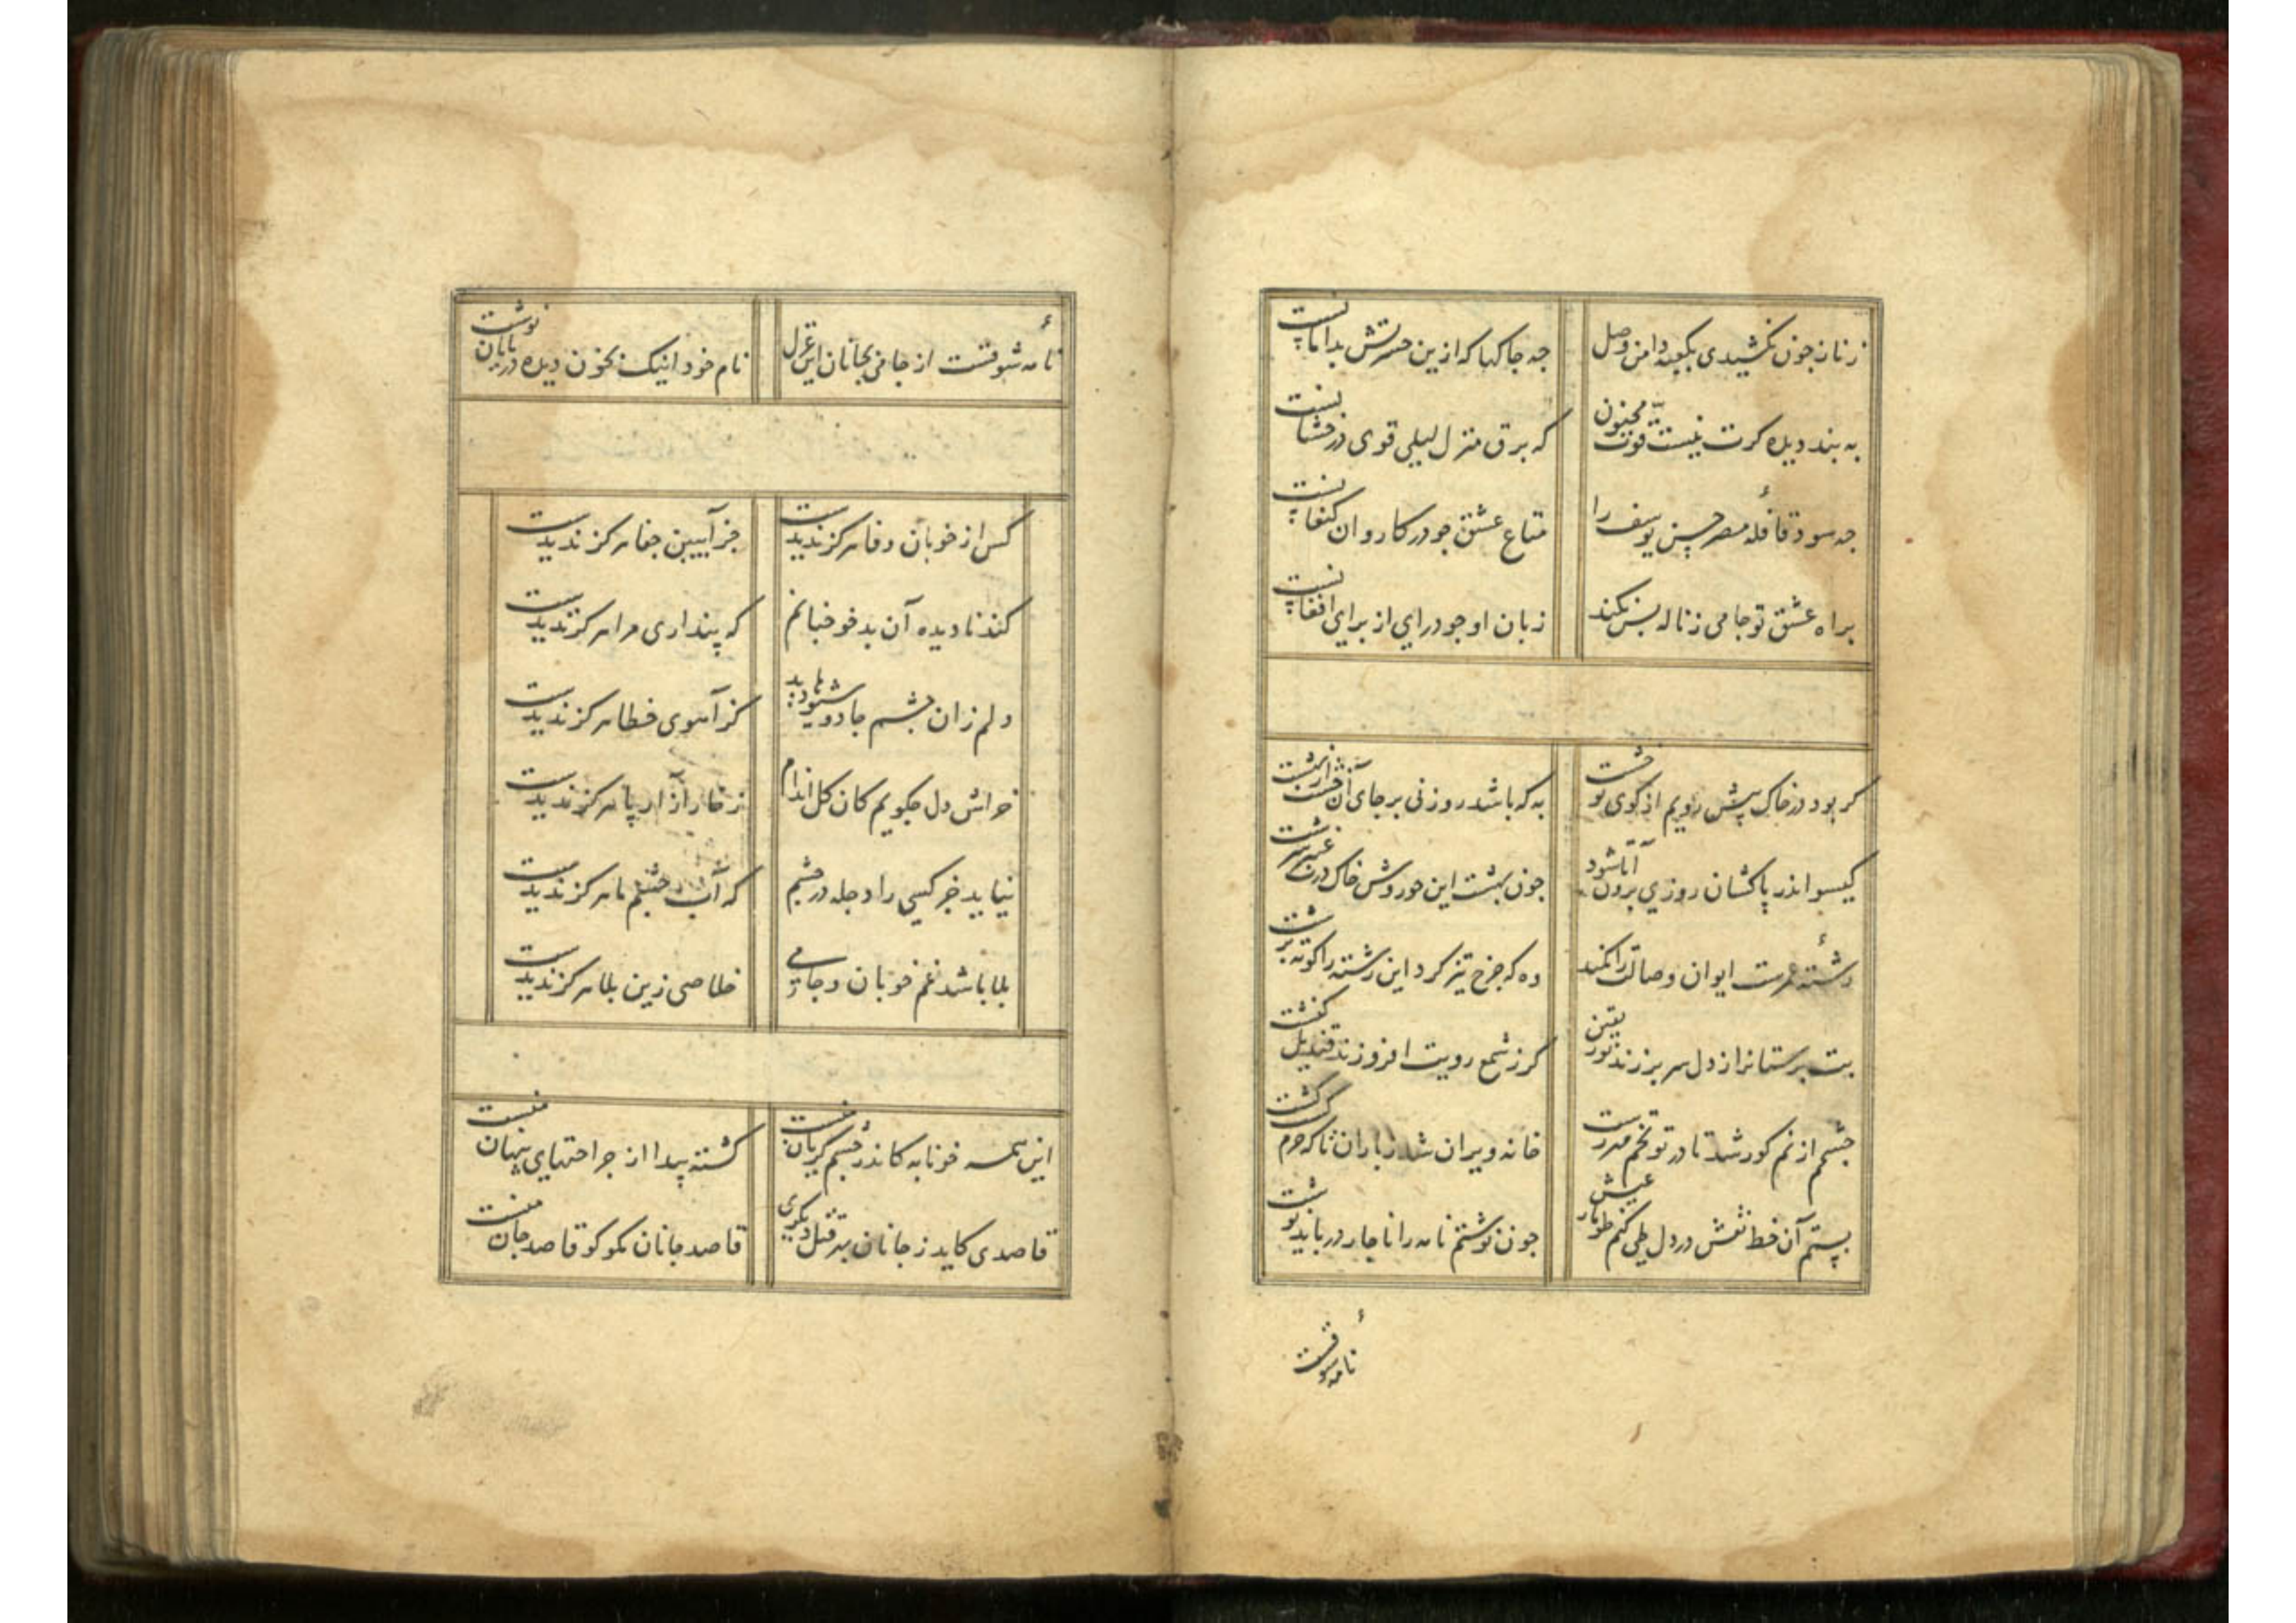 زنازجون نکشیدی بکعبه دامن وصل
جه جاکها که ازین حسرتش بدامانست
به بند دیده کرت نیست قوت مجنون
که برق منزل لیلی قوی درخشانست
جه سود قافلهٔ مصر حسن یوسف را
متاع عشق جو در کاروان کنعانست
براه عشق تو جامی ز ناله بس نکند
زبان او جو درای از برای افغانست
کر بود در خاک پیش رویم از کوی تو خشت
به که باشد روزنی بر جای آن خشت از بهشت
کیسو اندر پاکشان روزی برون آ تا شود
جون بهشت این حوروش خاک درت عنبر سرشت
رشتهٔ عمرست ایوان وصالت را کمند
وه که جرخ تیز کرد این رشته را کوته برشت
بت پرستانرا ز دل سر بر زند نور یقین
کر ز شمع رویت افروزند قندیل کنشت
جشم از نم کور شد تا در تو تخم مهر رست
خانه ویران شد ز باران تا که خرم کشت کشت
بستم آن خط نقش در دل طی کنم طومار عیش
جون نوشتم نامه را ناجار در باید نوشت
نامهٔ شوقست
نامهٔ شوقست از جامی بجانان این غزل
نام خود اینک بخون دیده در پایان نوشت
کس از خوبان وفا هرکز ندیدست
جز آیین جفا هرکز ندیدست
کند نادیده آن بدخو جنانم
که پنداری مرا هرکز ندیدست
دلم زان جشم جادو
کز آهوی خطا هرکز ندیدست
خراش دل جکویم کان کل اندام
ز خار آزار پا هرکز ندیدست
نیاید جز کسی را دجله در جشم
که آب جشم ما هرکز ندیدست
بلا باشد غم خوبان و جامی
خلاصی زین بلا هرکز ندیدست
این همه خونابه کاندر جشم کریان منست
کشته پیدا از جراحتهای پنهان منست
قاصدی کاید ز جانان بهر قتل دیکری
قاصد جانان مکو کو قاصد جان منست